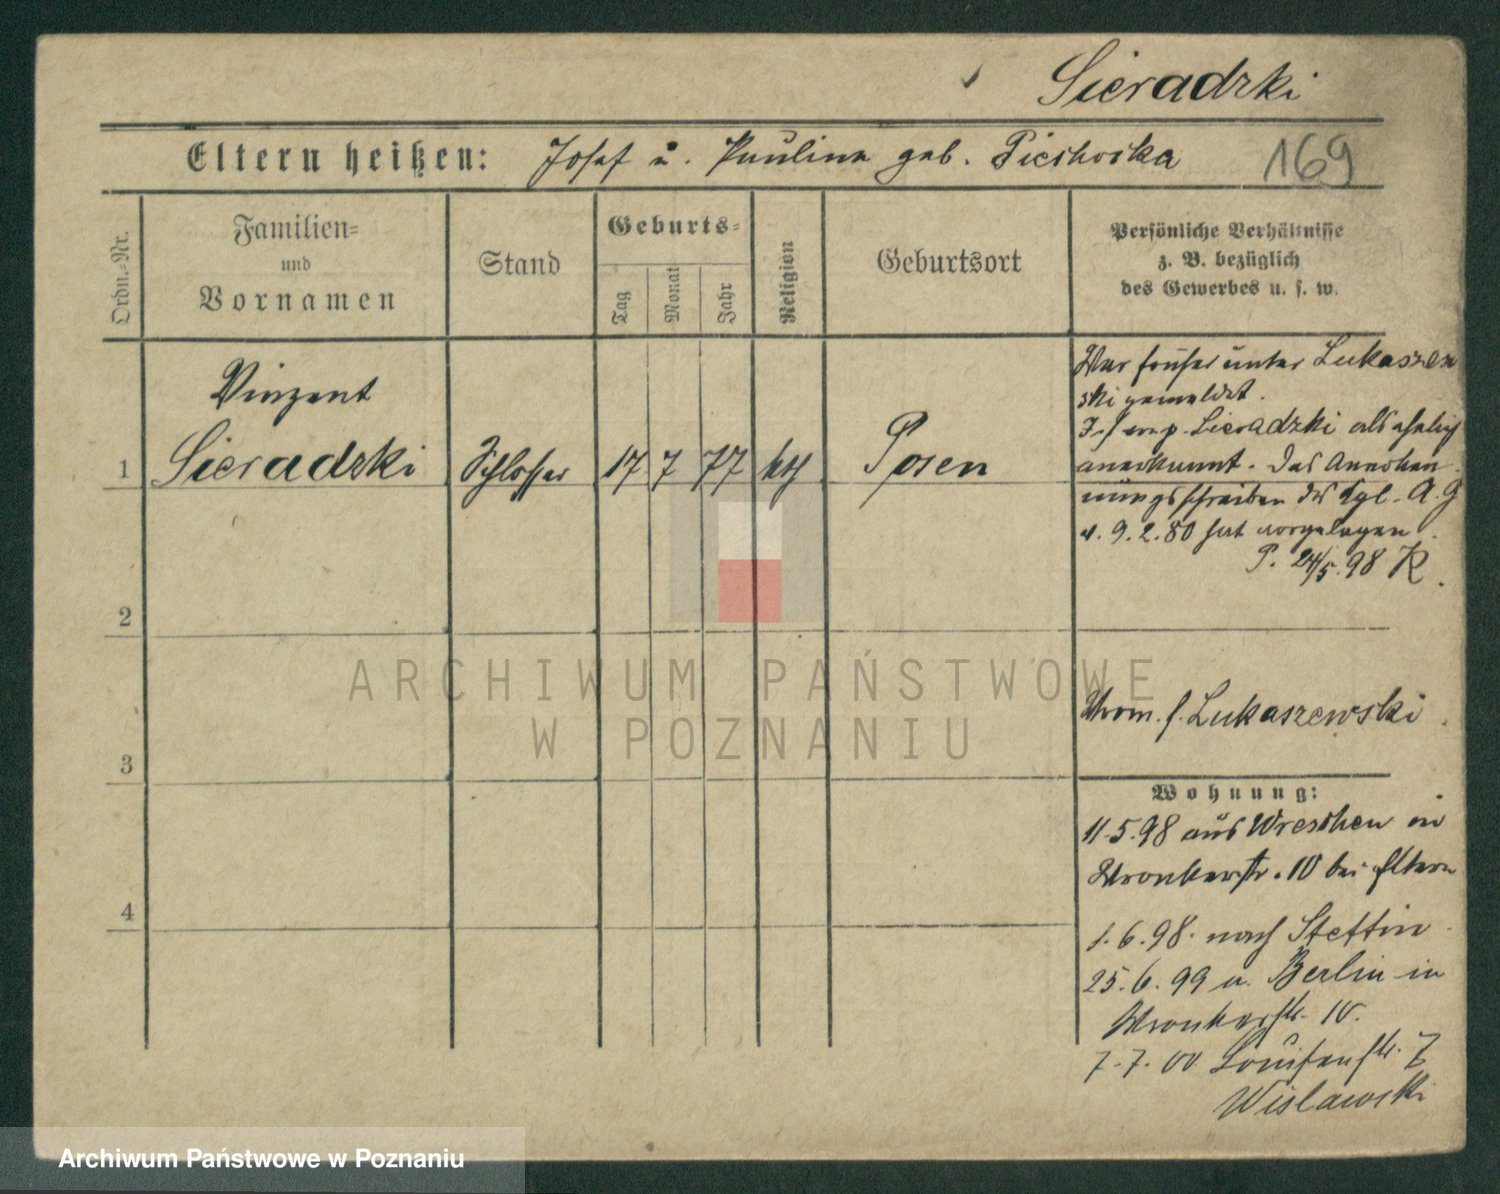 Sieradzki
Eltern heißen: Josef u. Paulina geb. Piechocka
169
Ordn.=Nr.
Familien=
und
Vornamen
Stand
Geburts=
Tag
Monat
Jahr
Religion
Geburtsort
Persönliche Verhältnisse
z. B. bezüglich
des Gewerbes u. s. w.
1
Vinzent
Sieradzki
Schlosser
17 7 77
kth
Posen
War früher unter Lukaszew
ski gemeldet.
Ist von p. Sieradzki als ehelich
anerkannt. Das Anerken
nungsschreiben des Kgl. A. G
v. 9.2.80 hat vorgelegen.
P. 24/5.98 R.
2
3
4
Vrom. s. Lukaszewski
Wohnung:
11.5.98 aus Wreschen in
Wronkerstr. 10 bei Eltern
1.6.98. nach Stettin
25.6.99 v. Berlin in
Wronkerstr. 10.
7.7.00 Louisenstr. 7
Wislawski
ARCHIWUM PAŃSTWOWE
W POZNANIU
Archiwum Państwowe w Poznaniu